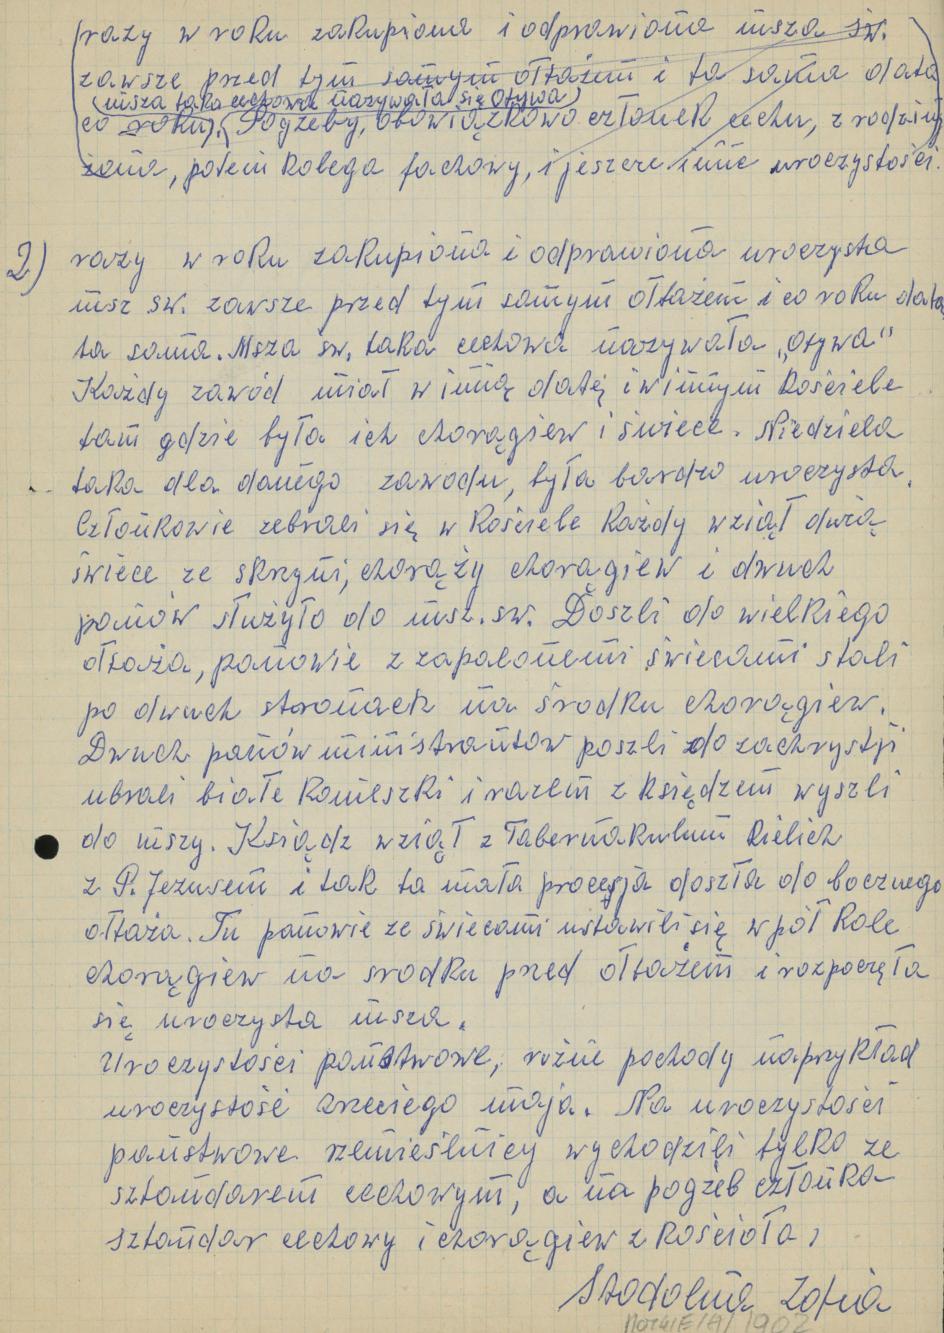 razy w roku zakupiona i odprawiona msza św.
zawsze przed tym samym ołtażem i ta sama data
(msza taka cechowa nazywała się Otywa)
co roku). (Pogrzeby, obowiązkowo członek cechu, z rodziny
żona, potem kolega fachowy, i jeszcze inne uroczystości.
2) razy w roku zakupiona i odprawiona uroczysta
msz św. zawsze przed tym samym ołtażem i co roku data
ta sama. Msza św. taka cechowa nazywała „otywa"
Każdy zawód miał w inną datę i w innym kościele
tam gdzie była ich chorągiew i świece. Niedziela
taka dla danego zawodu, była bardzo uroczysta.
Członkowie zebrali się w kościele każdy wziął dużą
świece ze skrzyni, chorąży chorągiew i dwuch
panów służyło do msz. św. Doszli do wielkiego
ołtaża, panowie z zapalonemi świecami stali
po dwuch stronach na środku chorągiew.
Dwuch panów ministrantów poszli do zachrystji
ubrali białe komeszki i razem z księdzem wyszli
do mszy. Ksiądz wziął z Tabernakulum kielich
z P. Jezusem i tak ta mała procesja doszła do bocznego
ołtaża. Tu panowie ze świecami ustawili się w pół kole
chorągiew na srodku przed ołtażem i rozpoczęła
się uroczysta msza.
Uroczystości państwowe, różne pochody naprykład
uroczystość trzeciego maja. Na uroczystości
państwowe rzemieślnicy wychodzili tylko ze
sztandarem cechowym, a na pogżeb członka
sztandar cechowy i chorągiew z kościoła,
Stodolna Zofia